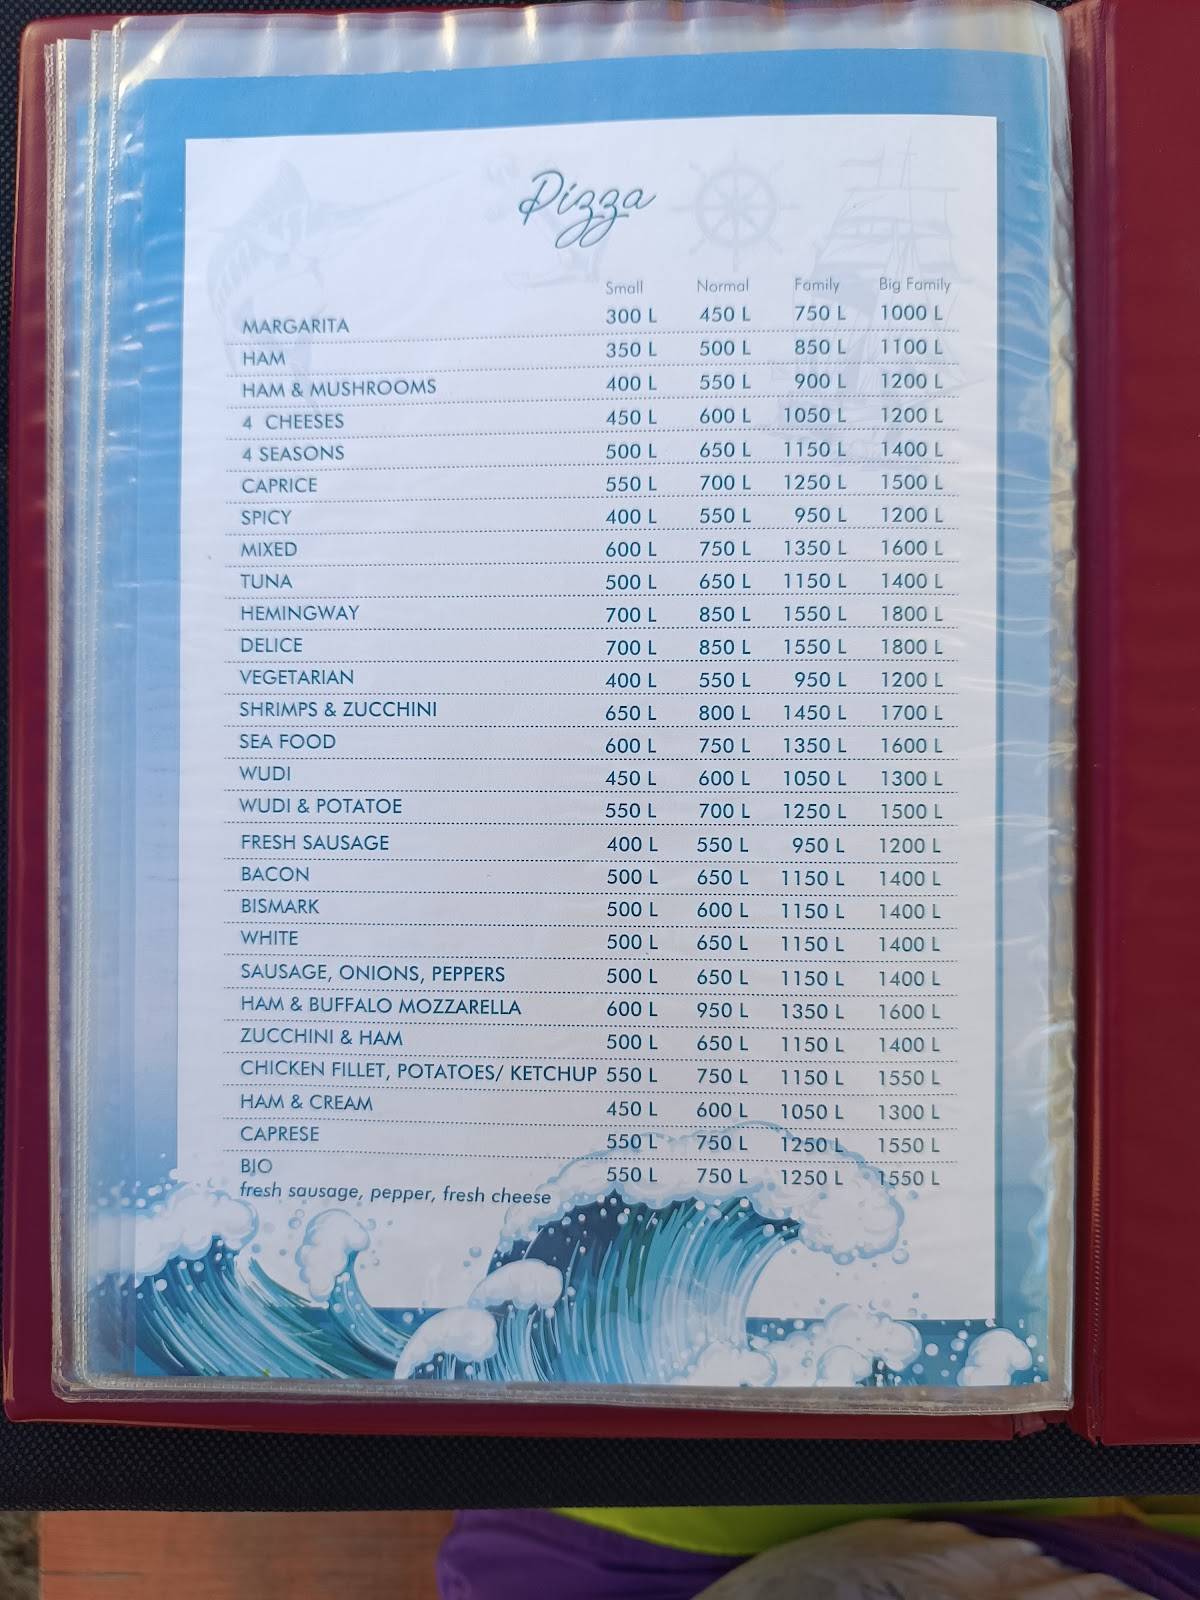 Pizza
Small Normal Family Big Family
MARGARITA 300 L 450 L 750 L 1000 L
HAM 350 L 500 L 850 L 1100 L
HAM & MUSHROOMS 400 L 550 L 900 L 1200 L
4 CHEESES 450 L 600 L 1050 L 1200 L
4 SEASONS 500 L 650 L 1150 L 1400 L
CAPRICE 550 L 700 L 1250 L 1500 L
SPICY 400 L 550 L 950 L 1200 L
MIXED 600 L 750 L 1350 L 1600 L
TUNA 500 L 650 L 1150 L 1400 L
HEMINGWAY 700 L 850 L 1550 L 1800 L
DELICE 700 L 850 L 1550 L 1800 L
VEGETARIAN 400 L 550 L 950 L 1200 L
SHRIMPS & ZUCCHINI 650 L 800 L 1450 L 1700 L
SEA FOOD 600 L 750 L 1350 L 1600 L
WUDI 450 L 600 L 1050 L 1300 L
WUDI & POTATOE 550 L 700 L 1250 L 1500 L
FRESH SAUSAGE 400 L 550 L 950 L 1200 L
BACON 500 L 650 L 1150 L 1400 L
BISMARK 500 L 600 L 1150 L 1400 L
WHITE 500 L 650 L 1150 L 1400 L
SAUSAGE, ONIONS, PEPPERS 500 L 650 L 1150 L 1400 L
HAM & BUFFALO MOZZARELLA 600 L 950 L 1350 L 1600 L
ZUCCHINI & HAM 500 L 650 L 1150 L 1400 L
CHICKEN FILLET, POTATOES/ KETCHUP 550 L 750 L 1150 L 1550 L
HAM & CREAM 450 L 600 L 1050 L 1300 L
CAPRESE 550 L 750 L 1250 L 1550 L
BIO 550 L 750 L 1250 L 1550 L
fresh sausage, pepper, fresh cheese